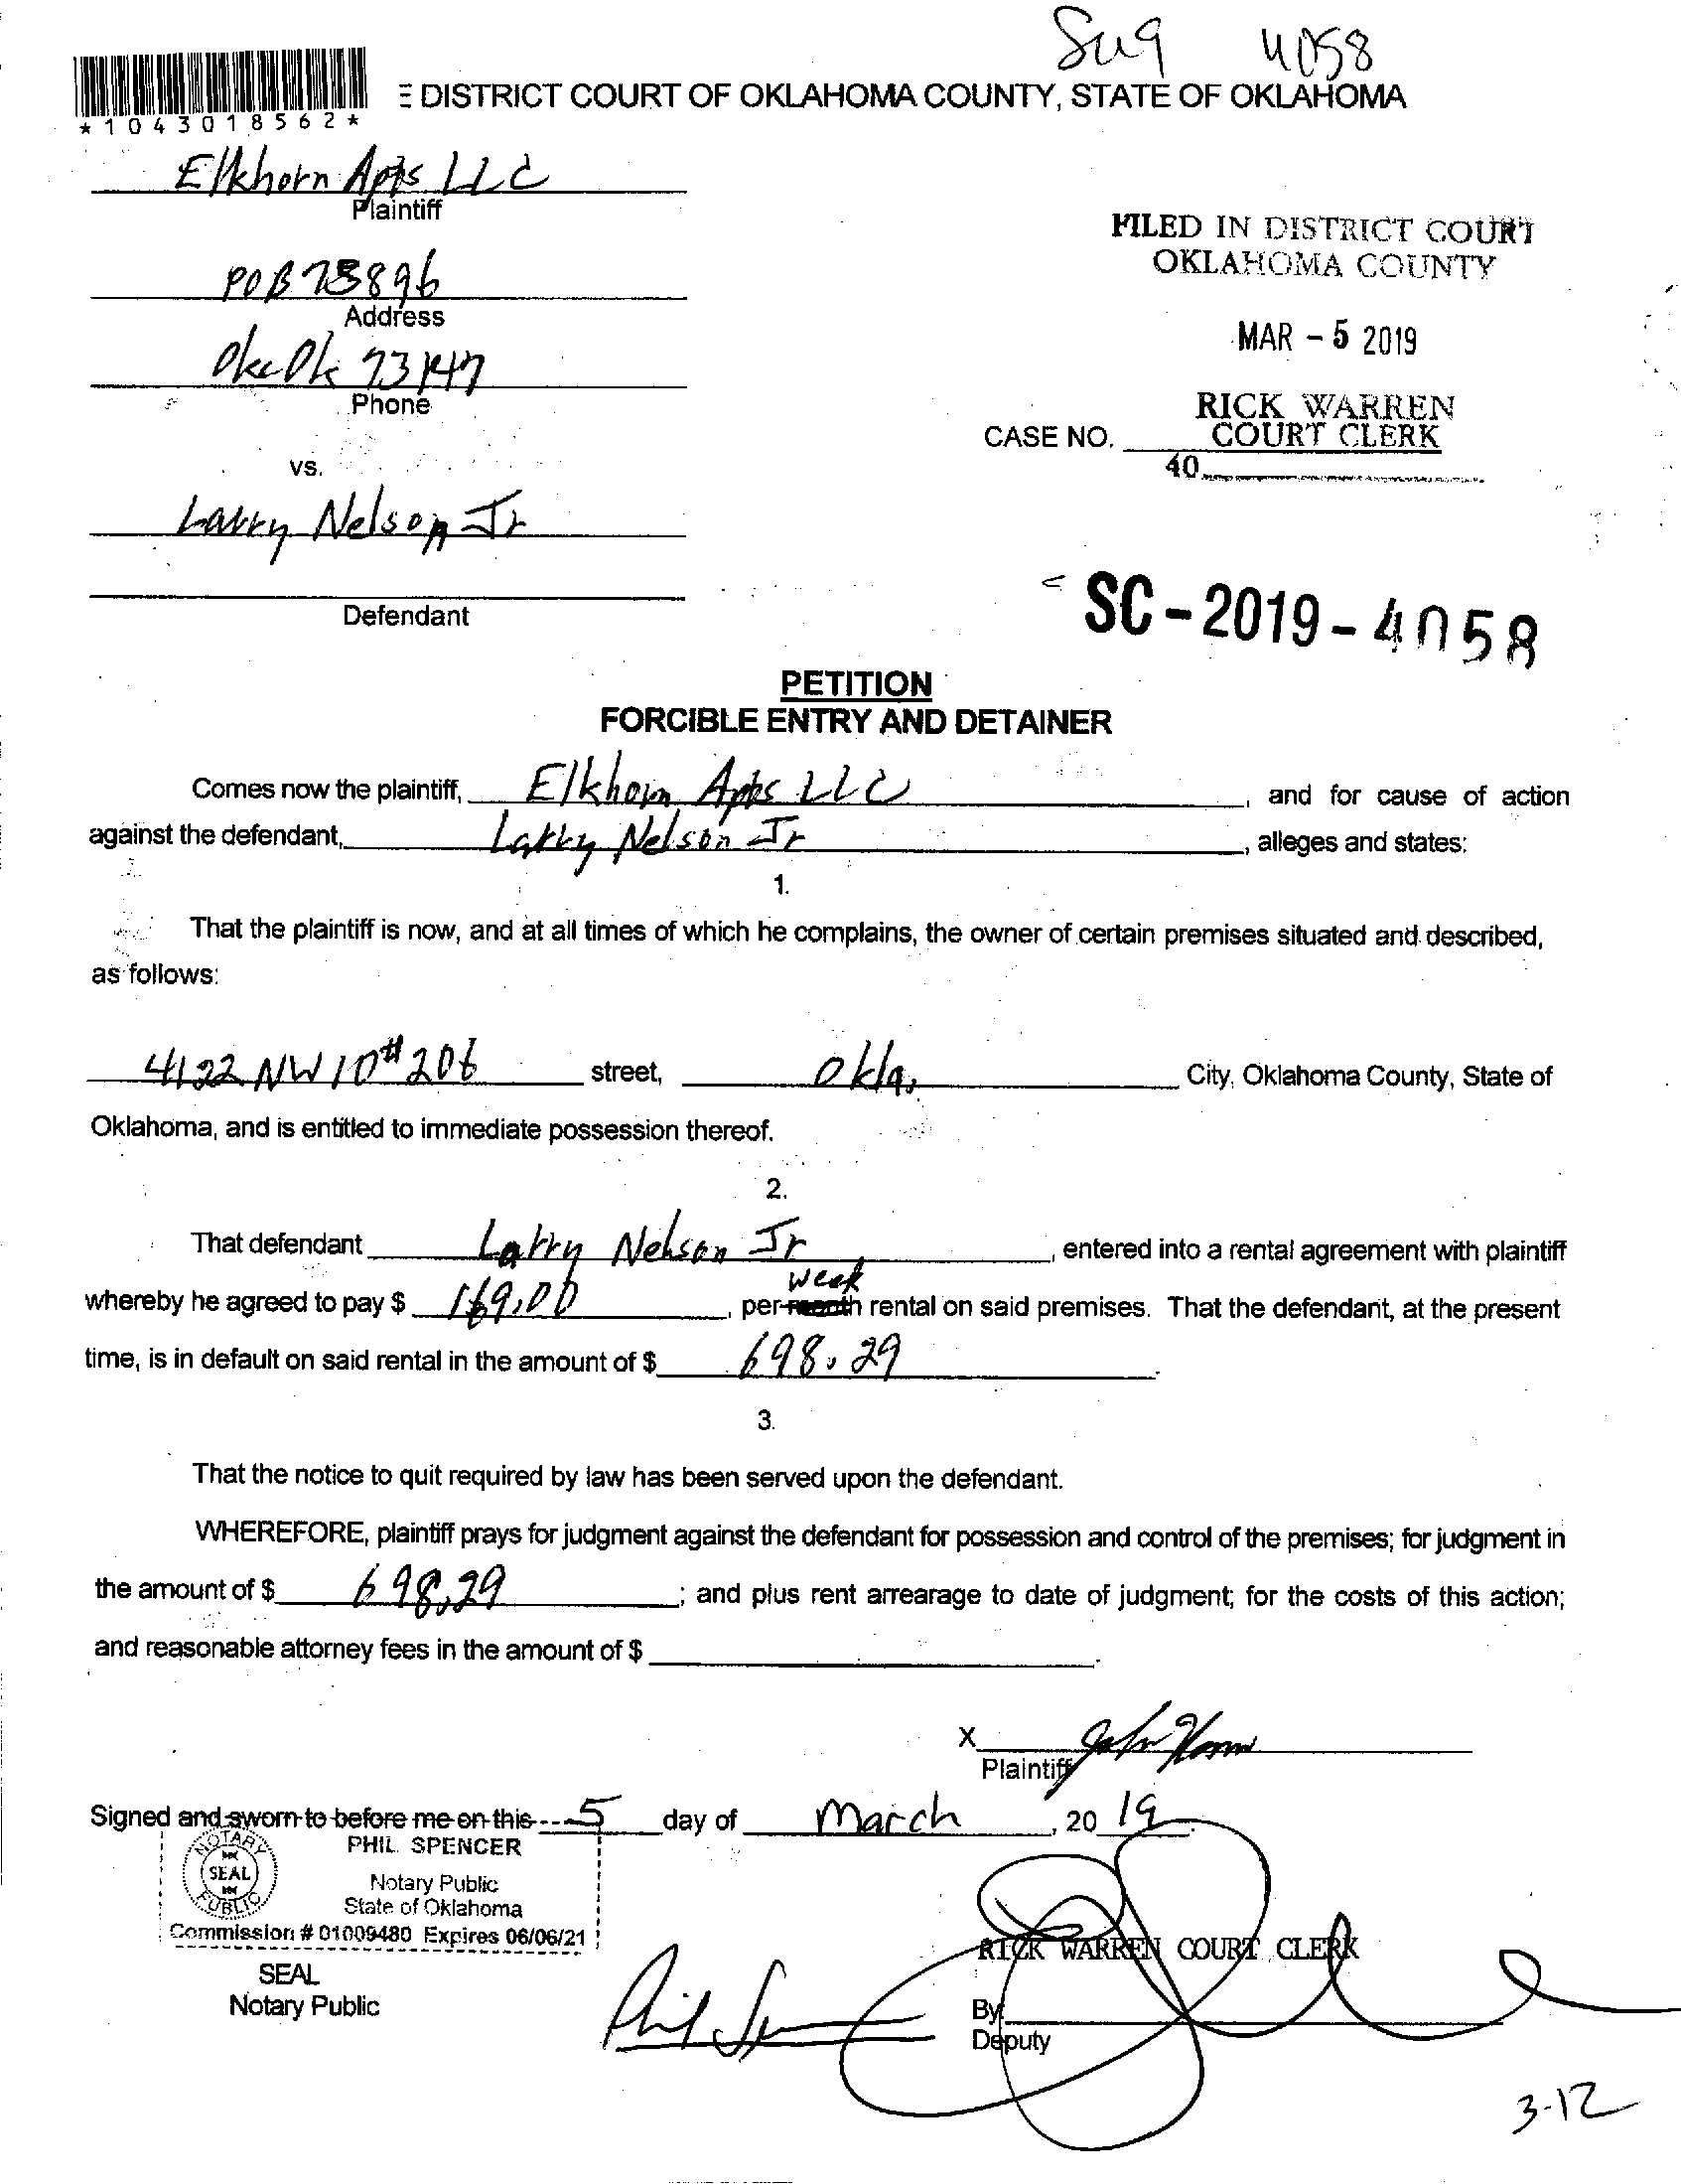 4058
*1043018562*
E DISTRICT COURT OF OKLAHOMA COUNTY, STATE OF OKLAHOMA
Elkhorn Apts LLC
Plaintiff
FILED IN DISTRICT COURT
OKLAHOMA COUNTY
POB 75896
Address
MAR - 5 2019
Okc Ok 73147
Phone
RICK WARREN
CASE NO. COURT CLERK
40
vs.
Larry Nelson Jr
Defendant
SC-2019-4058
PETITION
FORCIBLE ENTRY AND DETAINER
Comes now the plaintiff, Elkhorn Apts LLC, and for cause of action
against the defendant, Larry Nelson Jr, alleges and states:
1.
That the plaintiff is now, and at all times of which he complains, the owner of certain premises situated and described,
as follows:
4122 NW 10 #206 street, Okla. City, Oklahoma County, State of
Oklahoma, and is entitled to immediate possession thereof.
2.
That defendant Larry Nelson Jr, entered into a rental agreement with plaintiff
week
whereby he agreed to pay $ 169.00, per month rental on said premises. That the defendant, at the present
time, is in default on said rental in the amount of $ 698.29.
3.
That the notice to quit required by law has been served upon the defendant.
WHEREFORE, plaintiff prays for judgment against the defendant for possession and control of the premises; for judgment in
the amount of $ 698.29; and plus rent arrearage to date of judgment; for the costs of this action;
and reasonable attorney fees in the amount of $ .
X
Plaintiff
Signed and sworn to before me on this 5 day of March, 20 19.
NOTARY SEAL PUBLIC
PHIL SPENCER
Notary Public
State of Oklahoma
Commission # 01009480 Expires 06/06/21
SEAL
Notary Public
Phil
RICK WARREN COURT CLERK
By
Deputy
3-12